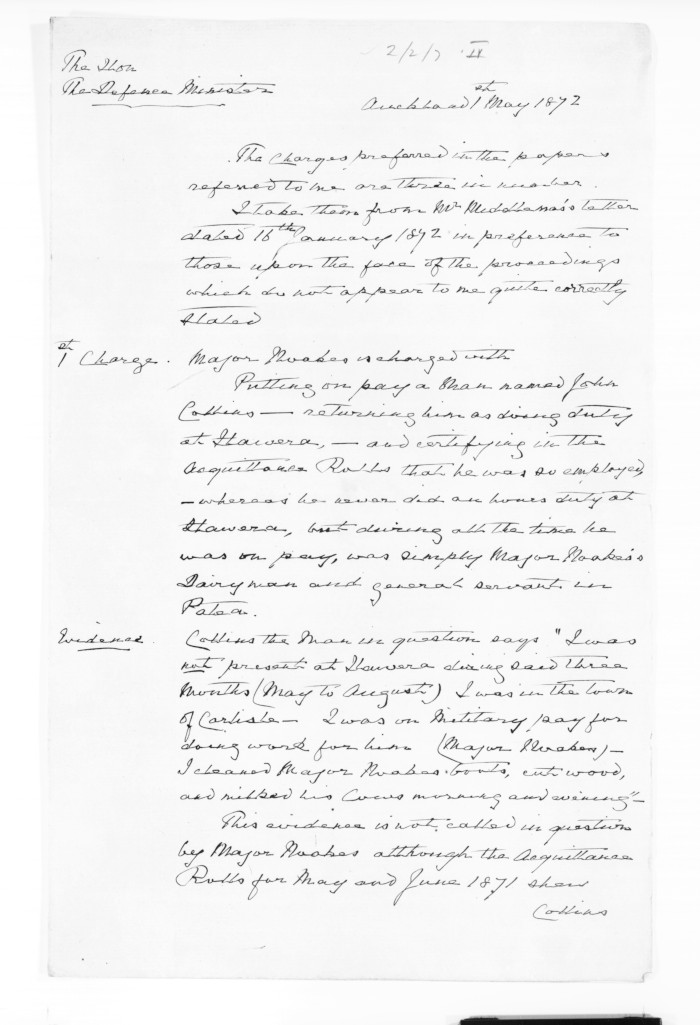 2/2/7 II
The Hon
The Defence Minister
Auckland 1st May 1872
The Charges preferred in the papers
referred to me are three in number.
I take them from Mr Middlemas's letter
dated 16th January 1872 in preference to
those upon the face of the proceedings
which do not appear to me quite correctly
stated
1st Charge. Major Noakes is charged with
Putting on pay a Man named John
Collins — returning him as doing duty
at Hawera, — and certifying in the
Acquittance Rolls that he was so employed,
– whereas he never did an hours duty at
Hawera, but during all the time he
was on pay, was simply Major Noakes's
Dairyman and general servant in
Patea.
Evidence. Collins the Man in question says "I was
not present at Hawera during said three
Months (May to August) I was in the town
of Carlisle – I was on Military pay for
doing work for him (Major Noakes) –
I cleaned Major Noakes boots, cut wood,
and milked his Cows morning and evening" –
This evidence is not called in question
by Major Noakes although the Acquittance
Rolls for May and June 1871 shew
Collins